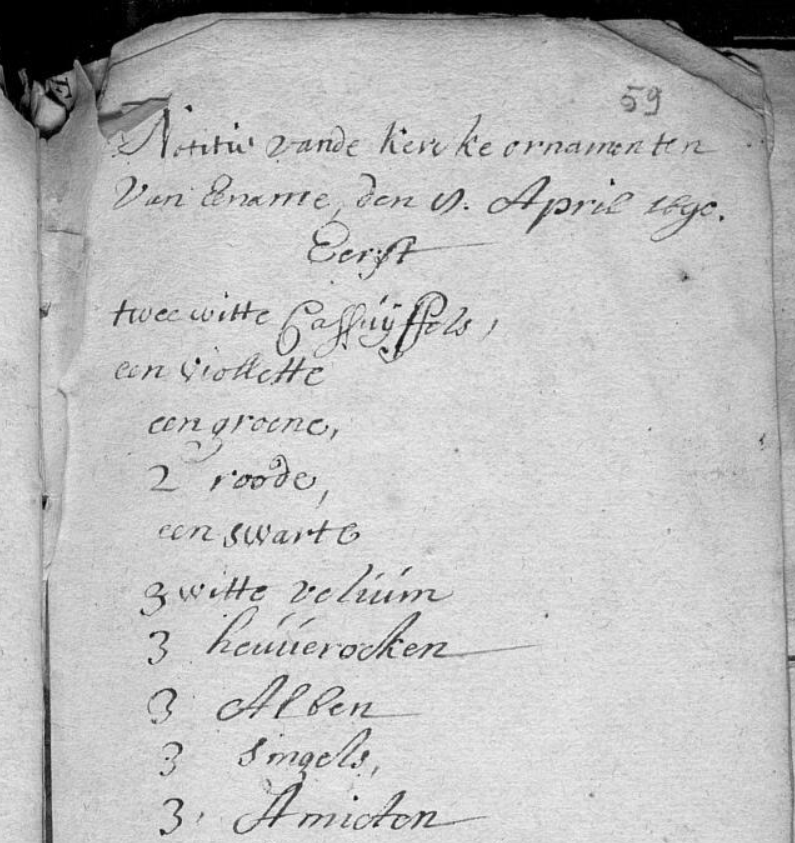 59
Notitie vande kercke ornamenten
Van Ename, den 8. April 1690.
Eerst
twee witte Cassuÿffels,
een viollette
een groene,
2 roode,
een swarte
3 witte veluùm
3 heuùerocken
3 Alben
3 singels,
3, Amicten